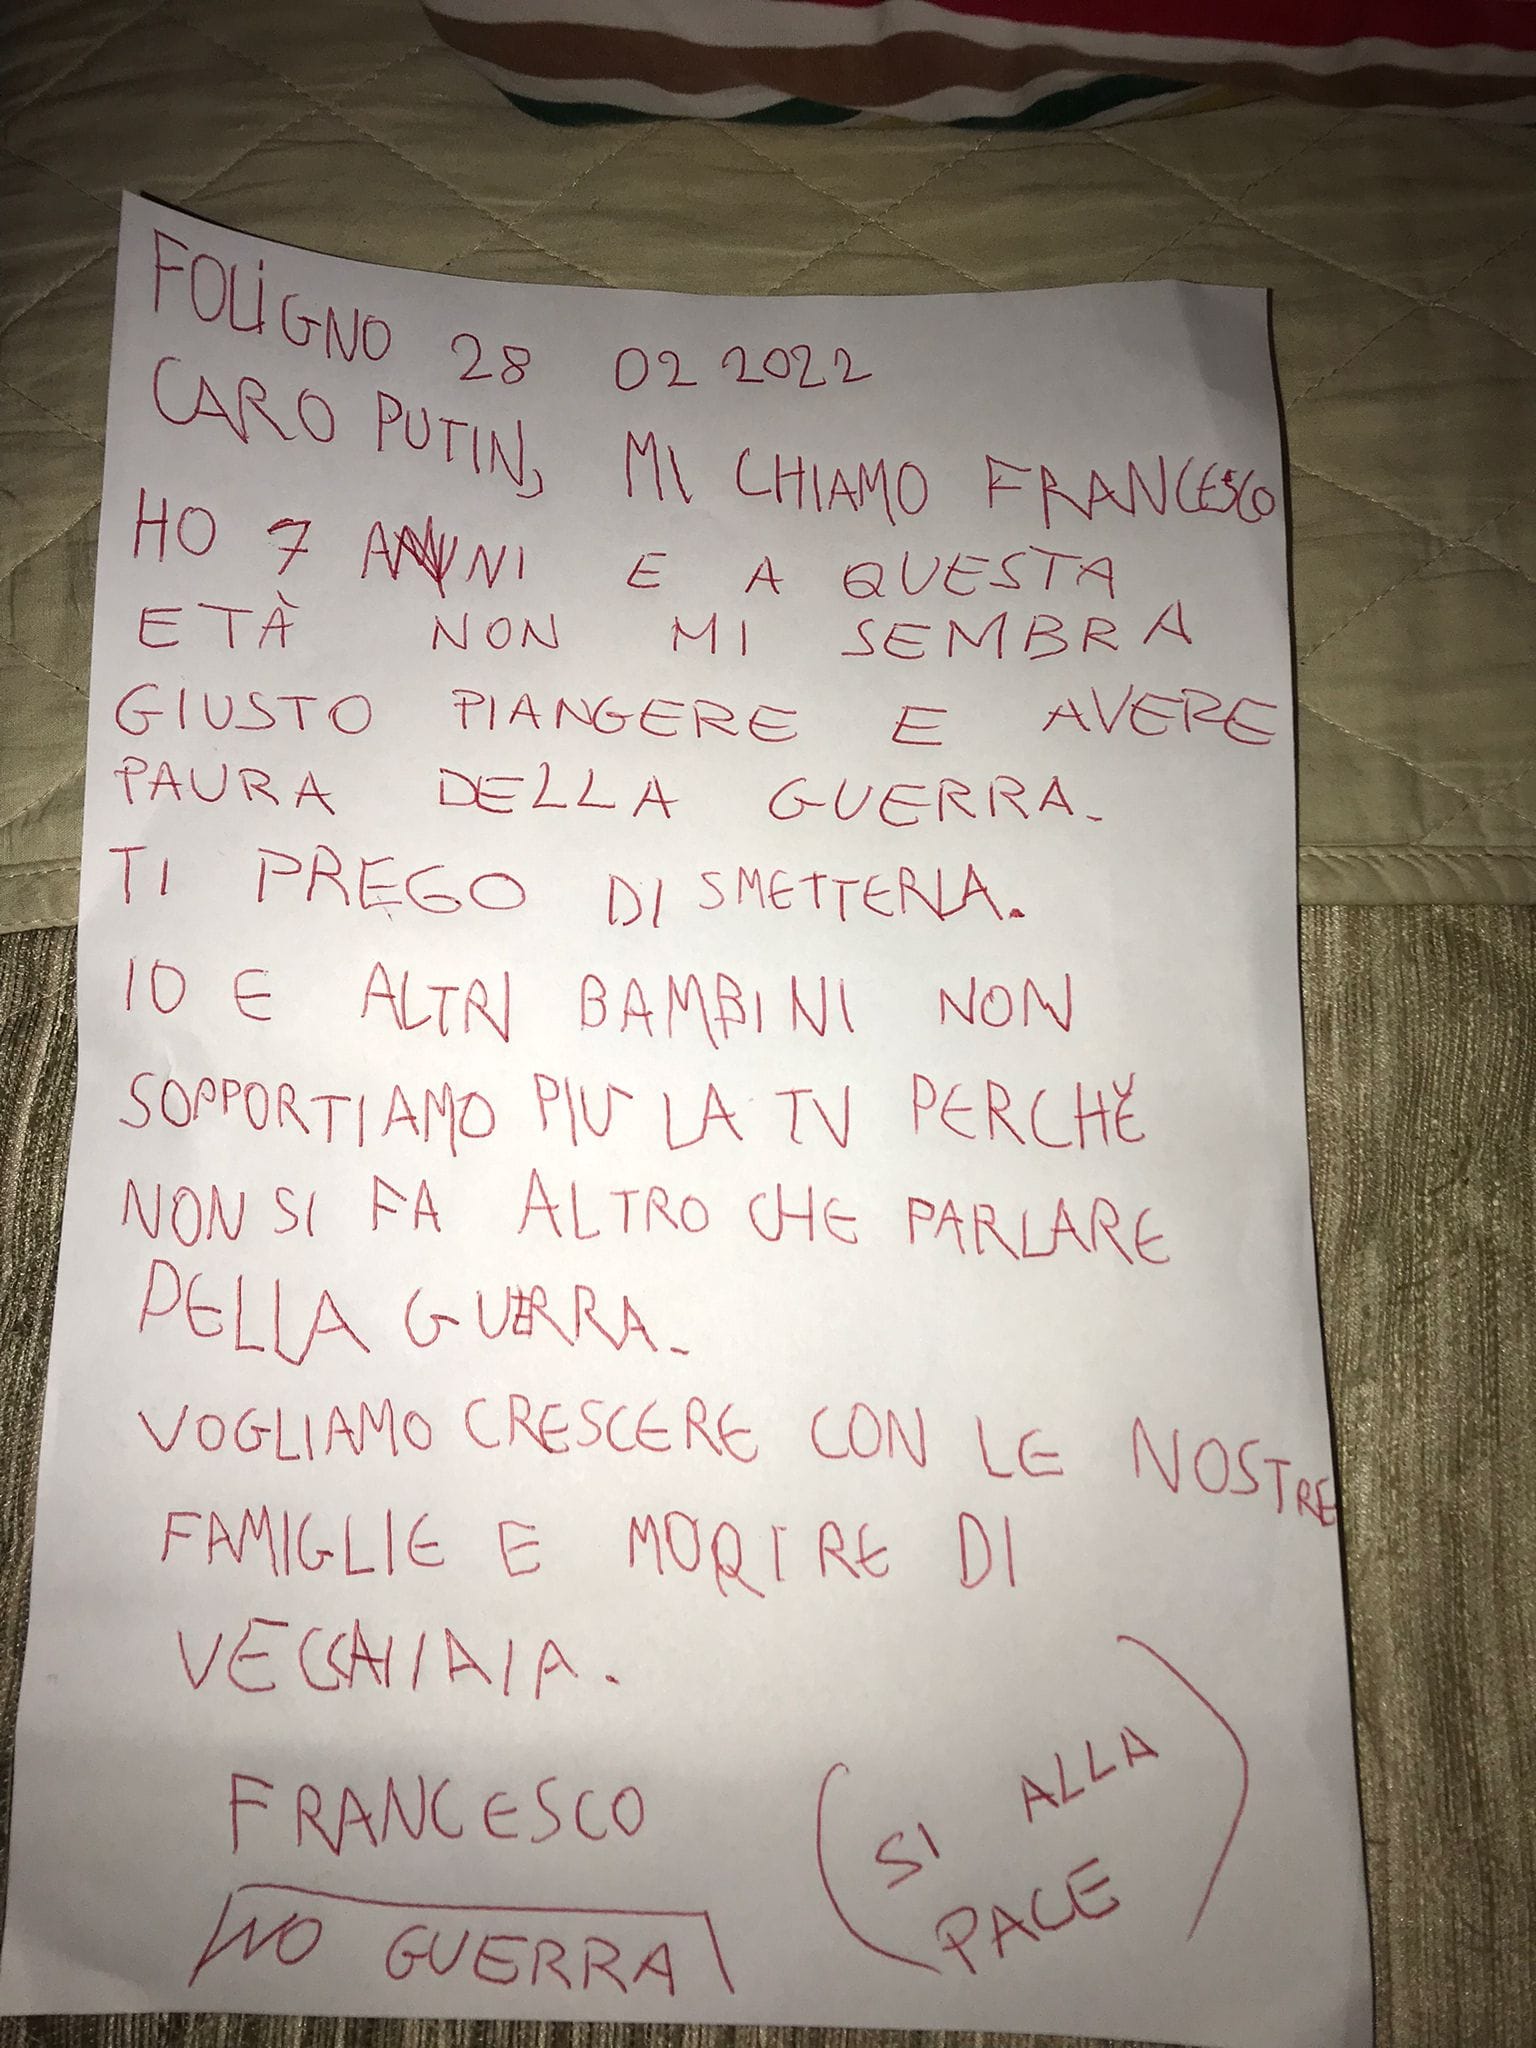 FOLiGNO 28 02 2022
CARO PUTIN, MI CHIAMO FRANCESCO
HO 7 ANNI E A QUESTA
ETÀ NON MI SEMBRA
GIUSTO PIANGERE E AVERE
PAURA DELLA GUERRA.
TI PREGO DI SMETTERLA.
IO E ALTRI BAMBINI NON
SOPPORTIAMO PIU LA TV PERCHĔ
NON SI FA ALTRO CHE PARLARE
DELLA GUERRA.
VOGLIAMO CRESCERE CON LE NOSTRE
FAMIGLIE E MORIRE DI
VECCHIAIA.
FRANCESCO
NO GUERRA
(SI ALLA
PACE)